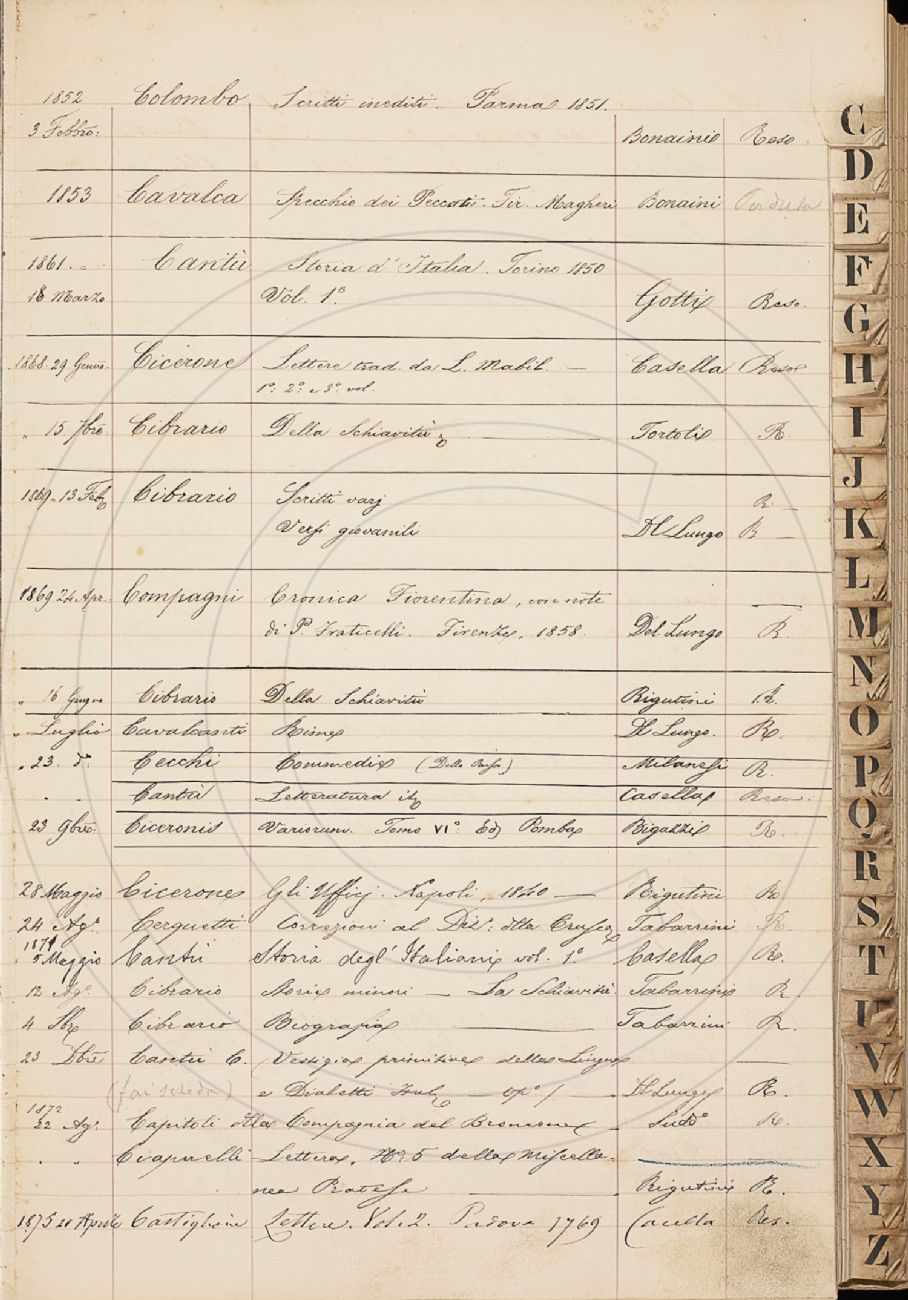 1852 Colombo Scritti inediti. Parma 1851.
3 Febbro: Bonaini Reso
1853 Cavalca Specchio dei Peccati. Fir. Magheri Bonaini Perduto
1861. Cantù Storia d'Italia. Torino 1850
18 Marzo Vol. 1° Gotti Reso.
1868. 29 Genn. Cicerone Lettere trad. da L. Mabil — Casella Reso
1°. 2° e 3° vol.
" 15 7bre Cibrario Della Schiavitù Tortoli R.
1869. 13 Feb. Cibrario Scritti varj R. —
Versi giovanili Del Lungo R —
1869 24 Apr. Compagni Cronica Fiorentina, con note
di P. Fraticelli. Firenze, 1858. Del Lungo R.
" 16 Giugno Cibrario Della Schiavitù Rigutini R.
" Luglio Cavalcanti Rime Del Lungo. R.
" 23. do Cecchi Commedie Milanesi R.
" " Cantù Letteratura it. Casella Reso.
23 9bre. Ciceronis Variorum. Tomo VI° Ed. Pomba Bigazzi R.
28 Maggio Cicerone Gli Uffici. Napoli, 1840 — Rigutini R
24 Ag° Cerquetti Correzioni al Diz°. della Crusca Tabarrini R.
1871
5 Maggio Cantù Storia degl'Italiani vol. 1° Casella R.
12 Ag° Cibrario Storie minori — La Schiavitù Tabarrini R.
4 Cibrario Biografia — Tabarrini R.
23 Dbre Cantù C. Vestigia primitive della Lingua —
(fai scheda) e Dialetti Ital. — op° / Del Lungo R.
1872
22 Ag° Capitoli della Compagnia del Sudo R.
" " Lettera, N° 5 della Miscella-
nea Pratese Rigutini R.
1875 20 Aprile Castiglione Lettere. Vol. 2. Padova 1769 Casella Res.
C
D
E
F
G
H
I
J
K
L
M
N
O
P
Q
R
S
T
U
V
W
X
Y
Z